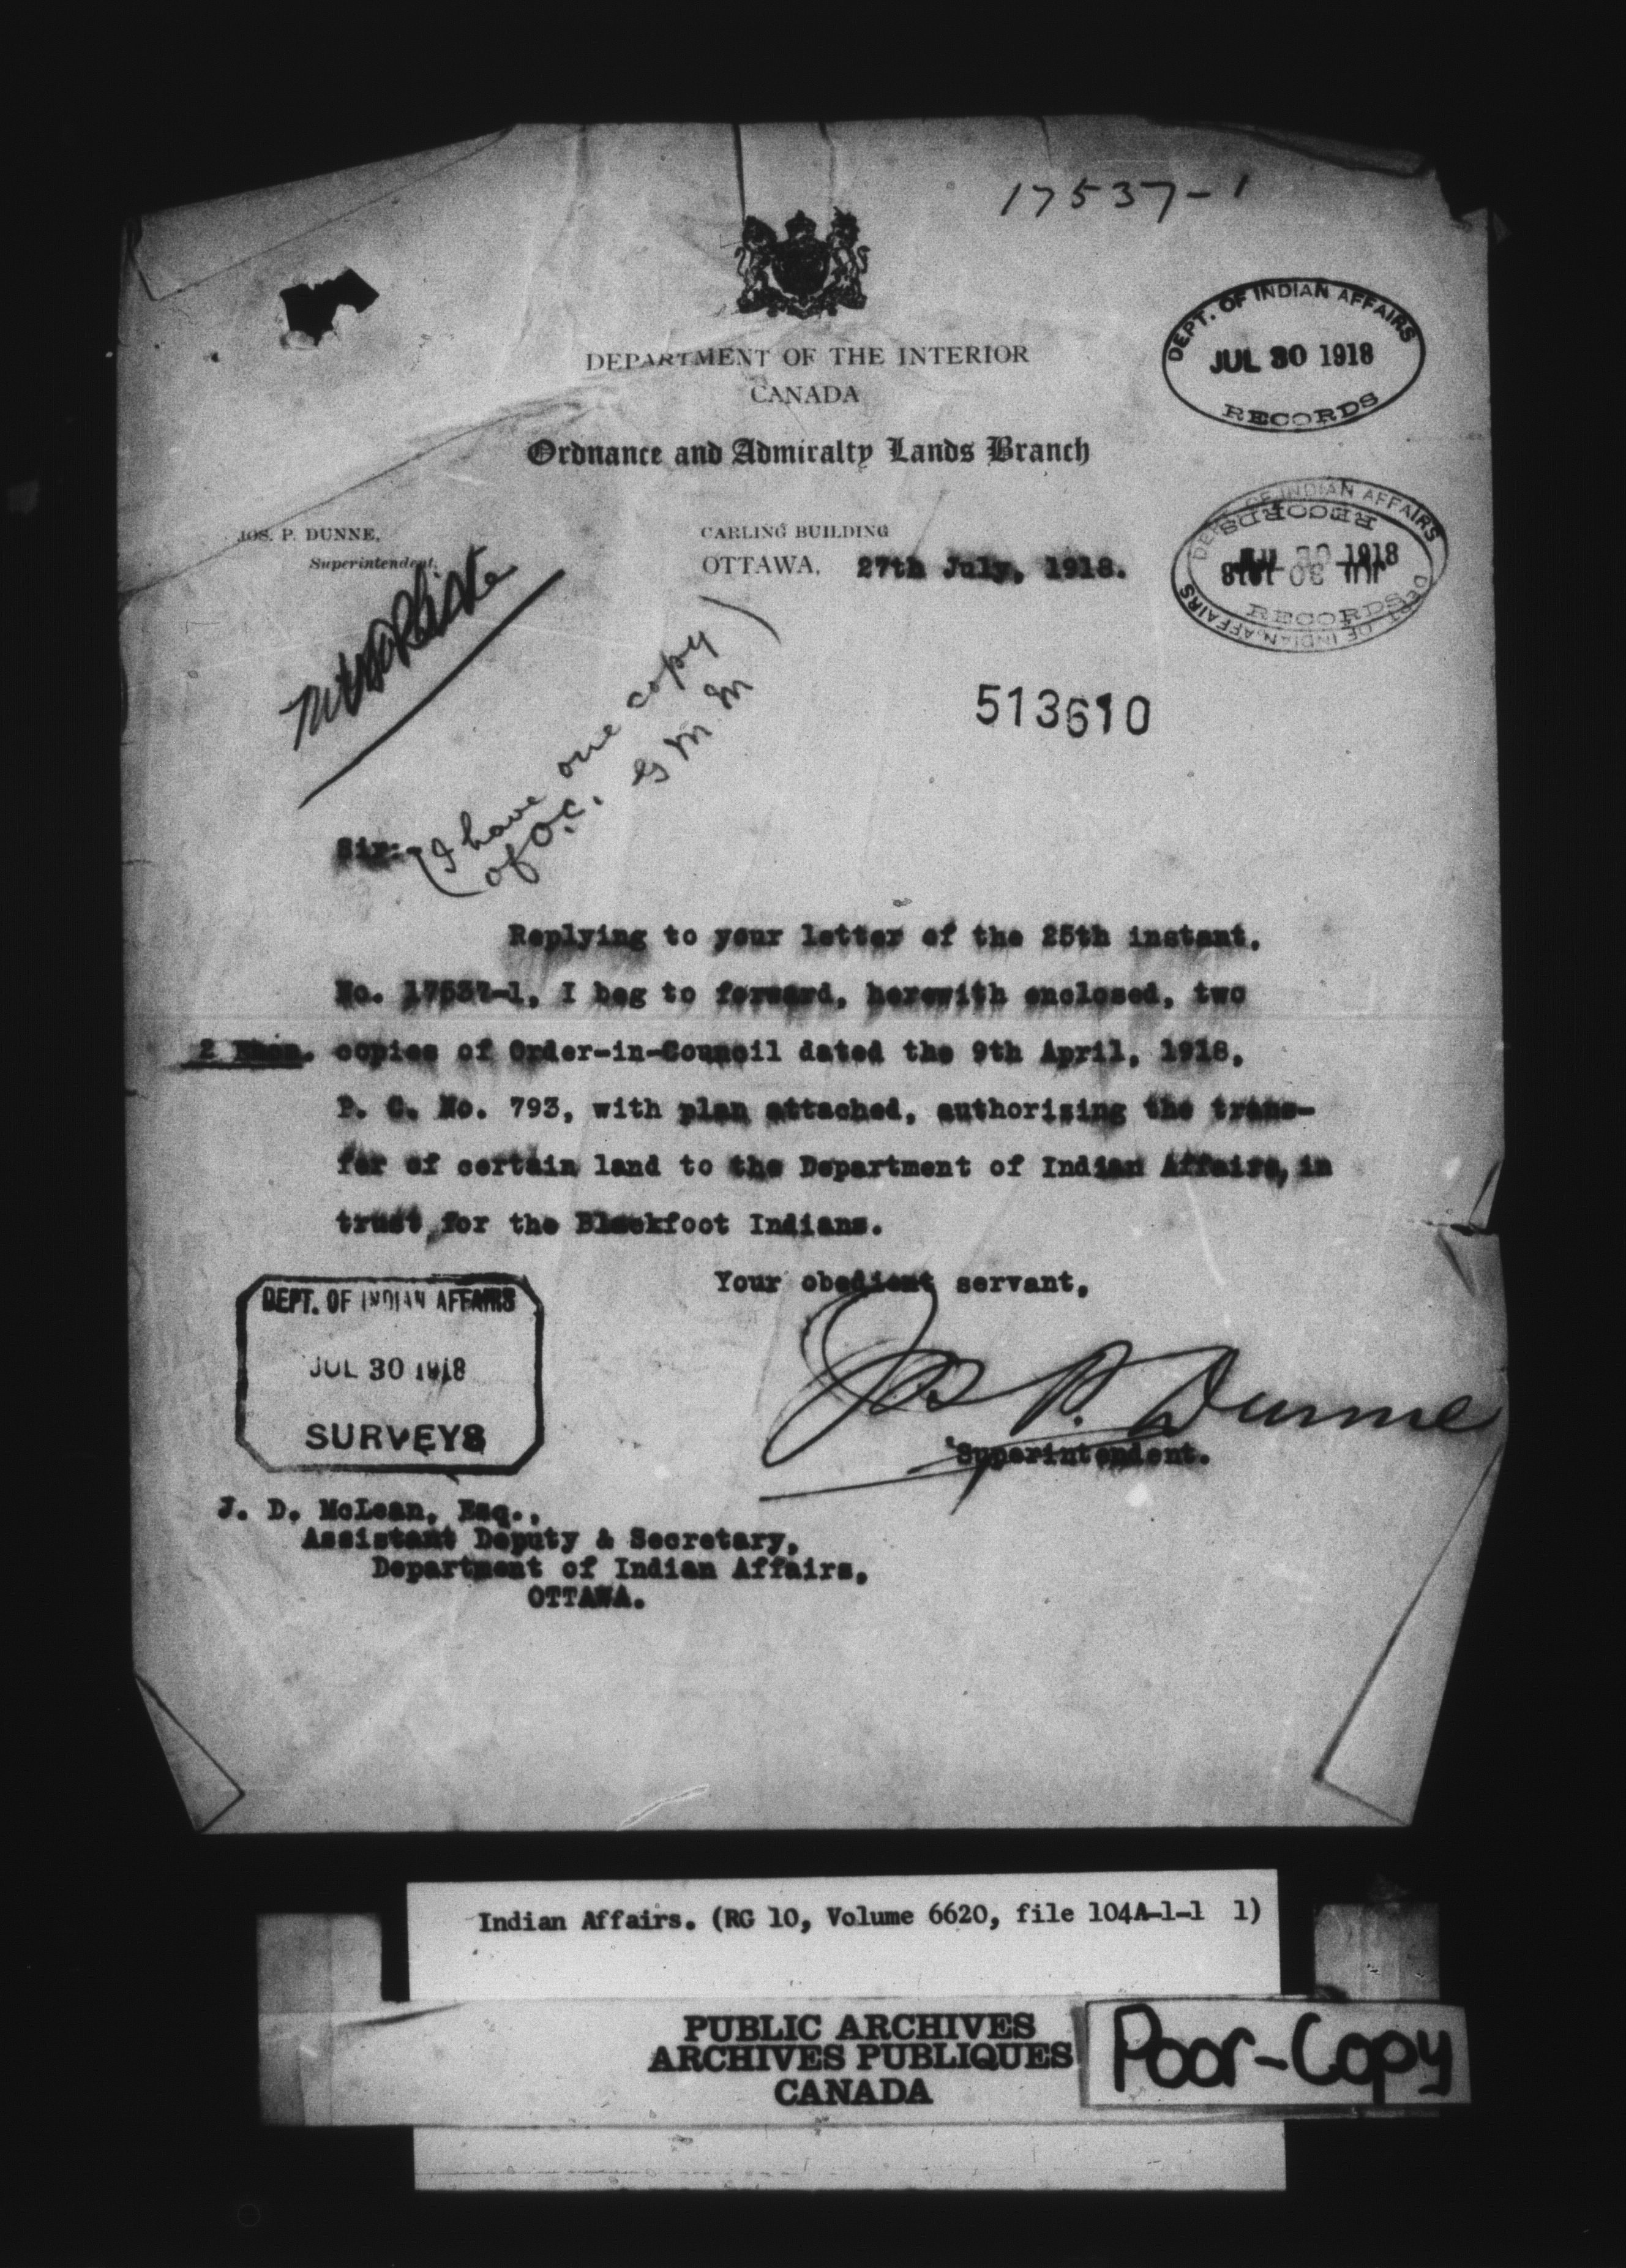 17537-1
DEPARTMENT OF THE INTERIOR
CANADA
Ordnance and Admiralty Lands Branch
DEPT. OF INDIAN AFFAIRS
JUL 30 1918
RECORDS
JOS. P. DUNNE,
Superintendent.
CARLING BUILDING
OTTAWA, 27th July, 1918.
DEPT. OF INDIAN AFFAIRS
JUL 30 1918
RECORDS
DEPT. OF INDIAN AFFAIRS
JUL 30 1918
RECORDS
513610
(I have one copy
of O.C. G M M)
Sir:-
Replying to your letter of the 25th instant,
No. 17537-1, I beg to forward, herewith enclosed, two
2 Encs. copies of Order-in-Council dated the 9th April, 1918,
P. C. No. 793, with plan attached, authorizing the trans-
fer of certain land to the Department of Indian Affairs, in
trust for the Blackfoot Indians.
Your obedient servant,
Jos P. Dunne
Superintendent.
DEPT. OF INDIAN AFFAIRS
JUL 30 1918
SURVEYS
J. D. McLean, Esq.,
Assistant Deputy & Secretary,
Department of Indian Affairs,
OTTAWA.
Indian Affairs. (RG 10, Volume 6620, file 104A-1-1 1)
PUBLIC ARCHIVES
ARCHIVES PUBLIQUES
CANADA
Poor-Copy